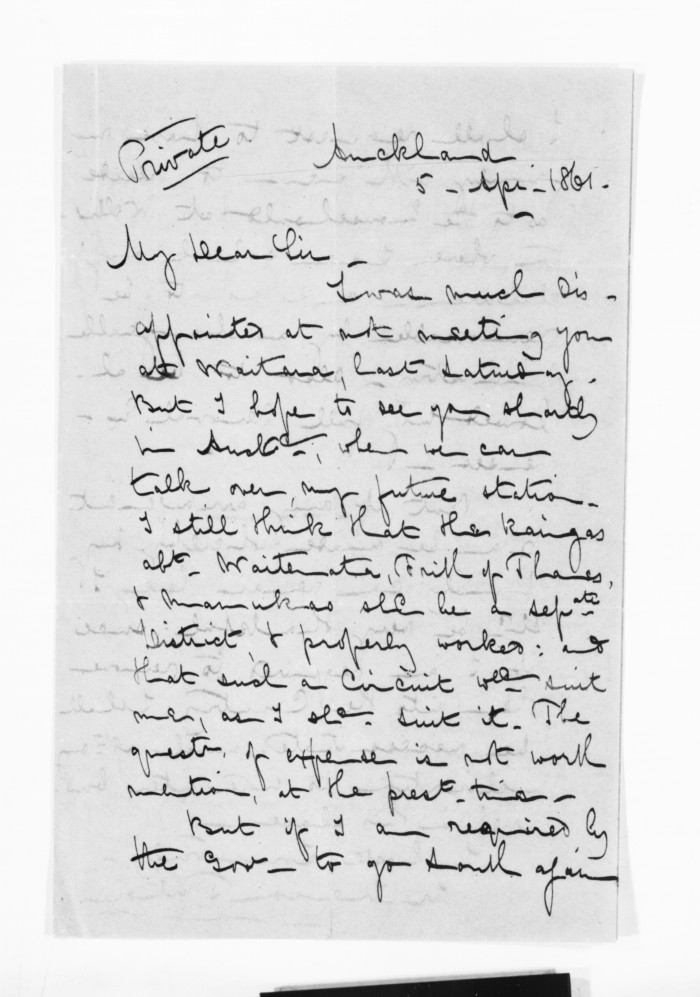 Private
Auckland
5 - Apl - 1861 -
My Dear Sir -
I was much dis -
appointed at not meeting you
at Waitara, last Saturday.
But I hope to see you shortly
in Auckd -, when we can
talk over, my future station -
I still think that the Kaingas
abt - Waitemata, Frith of Thames,
& Manukao shd be a sepate
District, & properly worked: and
that such a Circuit wd - suit
me, as I shd - suit it - The
questn. of expense is not worth
mention, at the prest - time -
But if I am required by
the Govr - to go South again